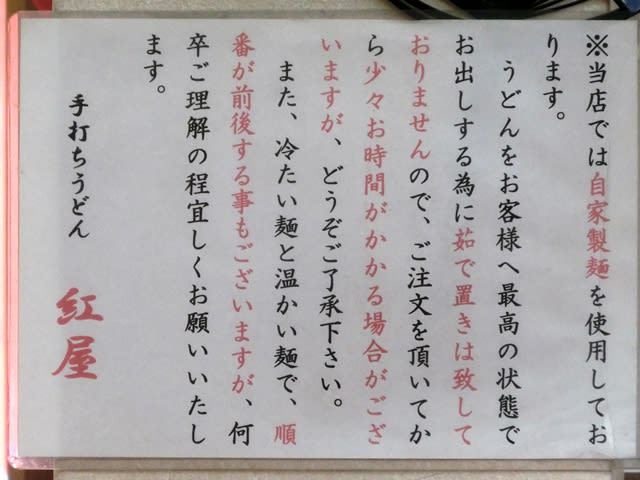 ※当店では自家製麺を使用してお
ります。
うどんをお客様へ最高の状態で
お出しする為に茹で置きは致して
おりませんので、ご注文を頂いてか
ら少々お時間がかかる場合がござ
いますが、どうぞご了承下さい。
また、冷たい麺と温かい麺で、順
番が前後する事もございますが、何
卒ご理解の程宜しくお願いいたし
ます。
手打ちうどん
紅屋